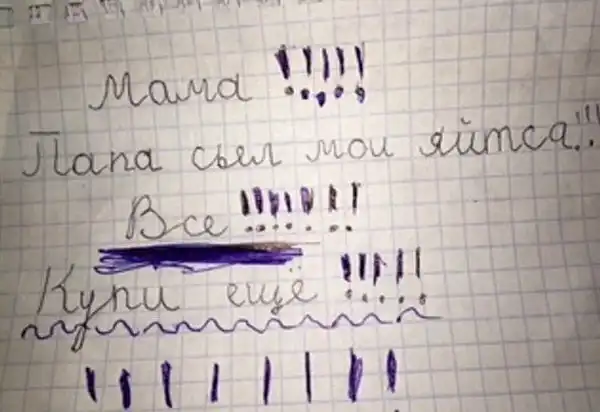 Мама !!!!!
Папа сьел мои яйтса!!!
Все !!!!!!!
Купи еще !!!!!